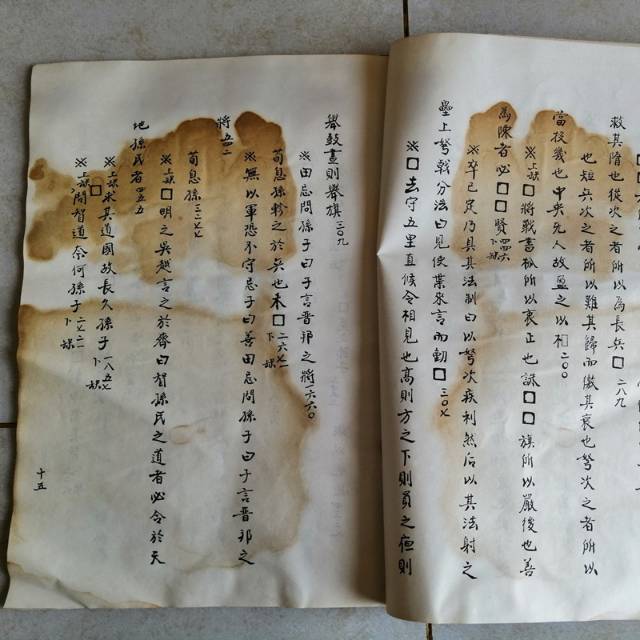 救其隋也從次之者所以為長兵□二八九
也短兵次之者所以難其歸而徼其衰也弩次之者所以
當投幾也中央无人故盈之以□二〇〇
※上缺□將戰書柲所以哀正也誅□□旗所以嚴後也善
為陳者必□□賢四四六下缺
※卒已定乃具其法制曰以弩次疾利然后以其法射之
壘上弩戟分法曰見使葉來言而動□三〇七
※□去守五里直候令相見也高則方之下則員之夜則
舉鼓晝則舉旗二〇九
※田忌問孫子曰子言晉邦之將六六〇
荀息孫軫之於兵也未□一六七一下缺
※無以軍恐不守忌子曰善田忌問孫子曰子言晉邦之
將五四二
荀息孫三二七七
※上缺□明之吳越言之於齊曰智孫氏之道者必合於天
地孫氏者四五五
※□上缺求其道國故長久孫子一八五七下缺
※上缺問智道奈何孫子一六二二下缺
十五